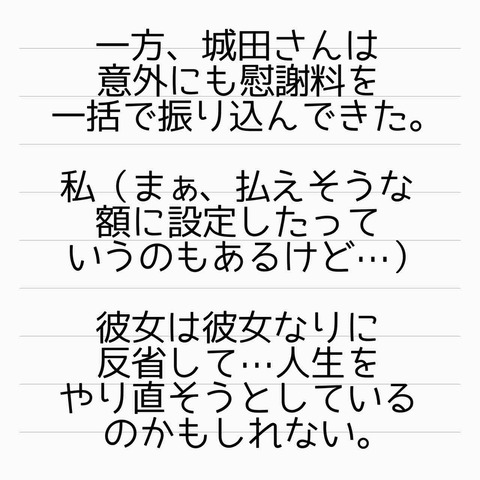 一方、城田さんは
意外にも慰謝料を
一括で振り込んできた。
私（まぁ、払えそうな
額に設定したって
いうのもあるけど…）
彼女は彼女なりに
反省して…人生を
やり直そうとしている
のかもしれない。